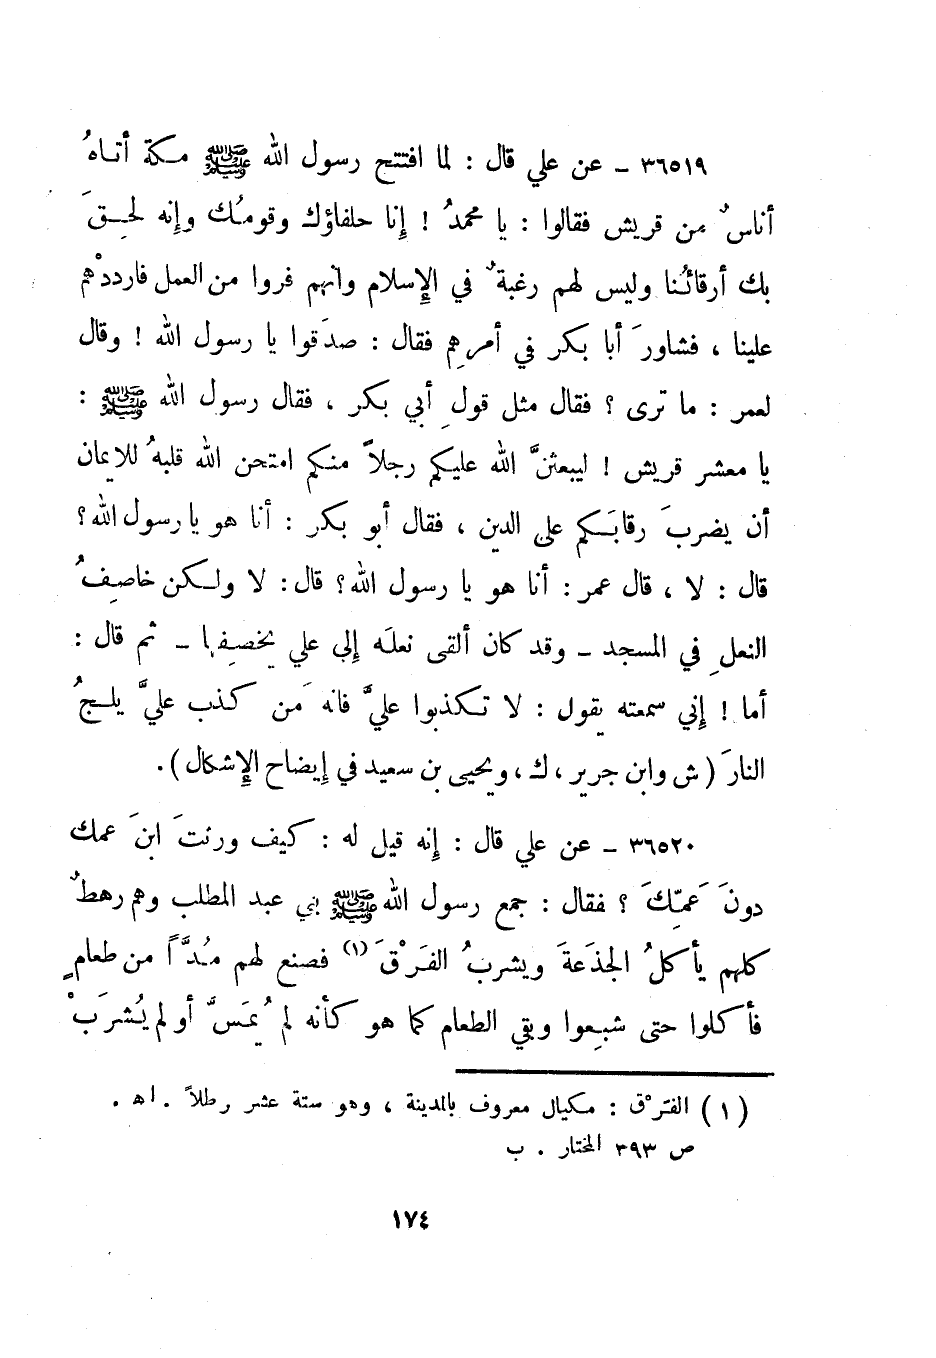 ٣٦٥١٩ ـ عن علي قال : لما افتتح رسول الله ﷺ مكة أتاهُ
أناسٌ من قريش فقالوا : يا محمدُ ! إنا حلفاؤك وقومُك وإنه لحِقَ
بك أرقائُنا وليس لهم رغبةٌ في الإسلام وانهم فروا من العمل فارددْهم
علينا ، فشاورَ أبا بكر في أمرهِم فقال : صدَقوا يا رسول الله ! وقال
لعمر : ما ترى ؟ فقال مثل قولِ أبي بكر ، فقال رسول الله ﷺ :
يا معشر قريش ! ليبعثنَّ الله عليكم رجلاً منكم امتحن الله قلبهُ للايمان
أن يضربَ رقابَكم على الدين ، فقال أبو بكر : أنا هو يا رسول الله ؟
قال : لا ، قال عمر : أنا هو يا رسول الله ؟ قال : لا ولكن خاصِفُ
النعلِ في المسجد ـ وقد كان ألقى نعلَه إلى علي يخصِفها ـ ثم قال :
أما ! إني سمعته يقول : لا تكذبوا عليَّ فانه مَن كذب عليَّ يلجُ
النارَ ( ش وابن جرير ، ك ، ويحيى بن سعيد في إيضاح الإشكال ) .
٣٦٥٢٠ ـ عن علي قال : إنه قيل له : كيف ورثتَ ابنَ عمك
دونَ عَمِّكَ ؟ فقال : جمع رسول الله ﷺ بني عبد المطلب وهم رهطٌ
كلهم يأكلُ الجذَعةَ ويشربُ الفَرْقَ (١) فصنع لهم مُدَّاً من طعامٍ
فأكلوا حتى شبِعوا وبقي الطعام كما هو كأنه لم يُمَسَّ أو لم يُشرَبْ
( ١ ) الفترْق : مكيال معروف بالمدينة ، وهو ستة عشر رطلاً . اه .
ص ٣٩٣ المختار . ب
١٧٤